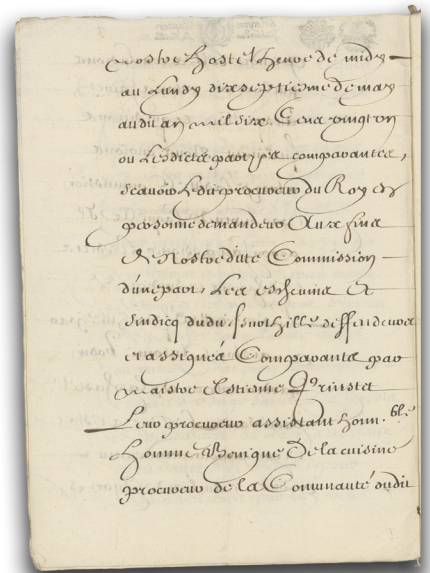 Nostre hostel heure de midy
au Lundy dixseptiesme de may
audit an mil six Cens vingt un
ou Lesdictes parties comparantes,
Scauoir Ledit procureur du Roy en
personne demandeur Aux fins
de Nostredite Commission
dune part, Les escheuins Et
Sindicq dudit deffendeurs
et assignés Comparants par
Maistre Estienne
Leur procureur assistant honn.ble
homme Benigne de la cuisine
procureur de la Comunauté dudit